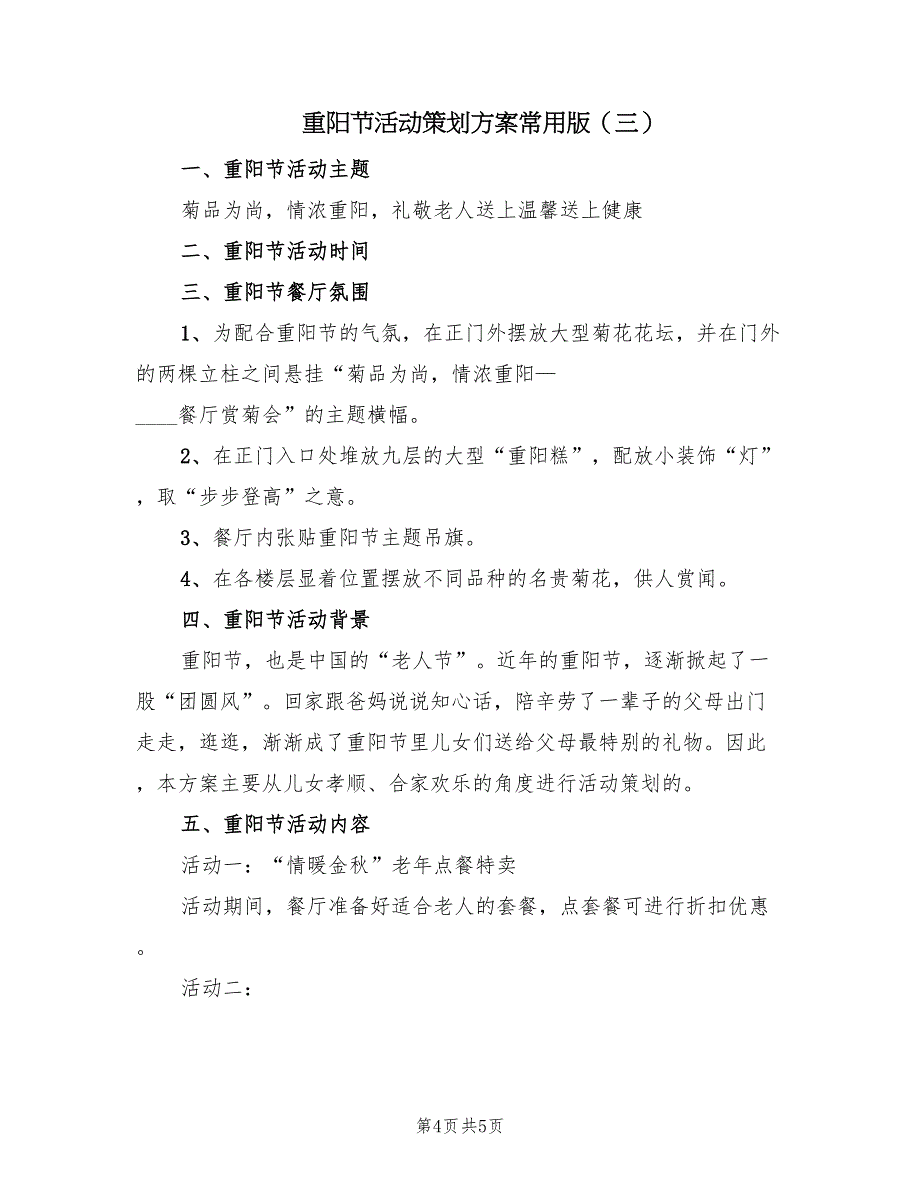 重阳节活动策划方案常用版（三）
一、重阳节活动主题
菊品为尚，情浓重阳，礼敬老人送上温馨送上健康
二、重阳节活动时间
三、重阳节餐厅氛围
1、为配合重阳节的气氛，在正门外摆放大型菊花花坛，并在门外
的两棵立柱之间悬挂“菊品为尚，情浓重阳—
____餐厅赏菊会”的主题横幅。
2、在正门入口处堆放九层的大型“重阳糕”，配放小装饰“灯”
，取“步步登高”之意。
3、餐厅内张贴重阳节主题吊旗。
4、在各楼层显着位置摆放不同品种的名贵菊花，供人赏闻。
四、重阳节活动背景
重阳节，也是中国的“老人节”。近年的重阳节，逐渐掀起了一
股“团圆风”。回家跟爸妈说说知心话，陪辛劳了一辈子的父母出门
走走，逛逛，渐渐成了重阳节里儿女们送给父母最特别的礼物。因此
，本方案主要从儿女孝顺、合家欢乐的角度进行活动策划的。
五、重阳节活动内容
活动一：“情暖金秋”老年点餐特卖
活动期间，餐厅准备好适合老人的套餐，点套餐可进行折扣优惠
。
活动二：
第4页共5页